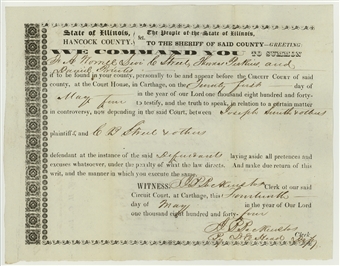 State of Illinois, The People of the State of Illinois,
HANCOCK COUNTY. TO THE SHERIFF OF SAID COUNTY—GREETING:
WE COMMAND YOU TO SUMMON
and
if to be found in your county, personally to be and appear before the CIRCUIT COURT of said
county, at the Court House, in Carthage, on the Twenty first day of
May four in the year of our Lord one thousand eight hundred and forty-
to testify, and the truth to speak, in relation to a certain matter
in controversy, now depending in the said Court, between Joseph Smith & others
plaintiff & and C L & others
defendant at the instance of the said Defendants laying aside all pretences and
excuses whatsoever, under the penalty of what the law directs. And make due return of this
writ, and the manner in which you execute the same.
WITNESS: Clerk of our said
Circuit Court, at Carthage, this Fourteenth
day of May in the year of Our Lord
one thousand eight hundred and forty-four
Clerk
By D. E. Head